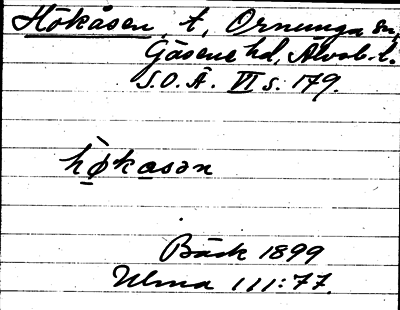 Hökåsen, t., Ornunga sn,
Gäsene hd, Älvsb. l.
S.O.Ä. VI s. 179.
hø̀kasən
Bäck 1899
Ulma 111:77.